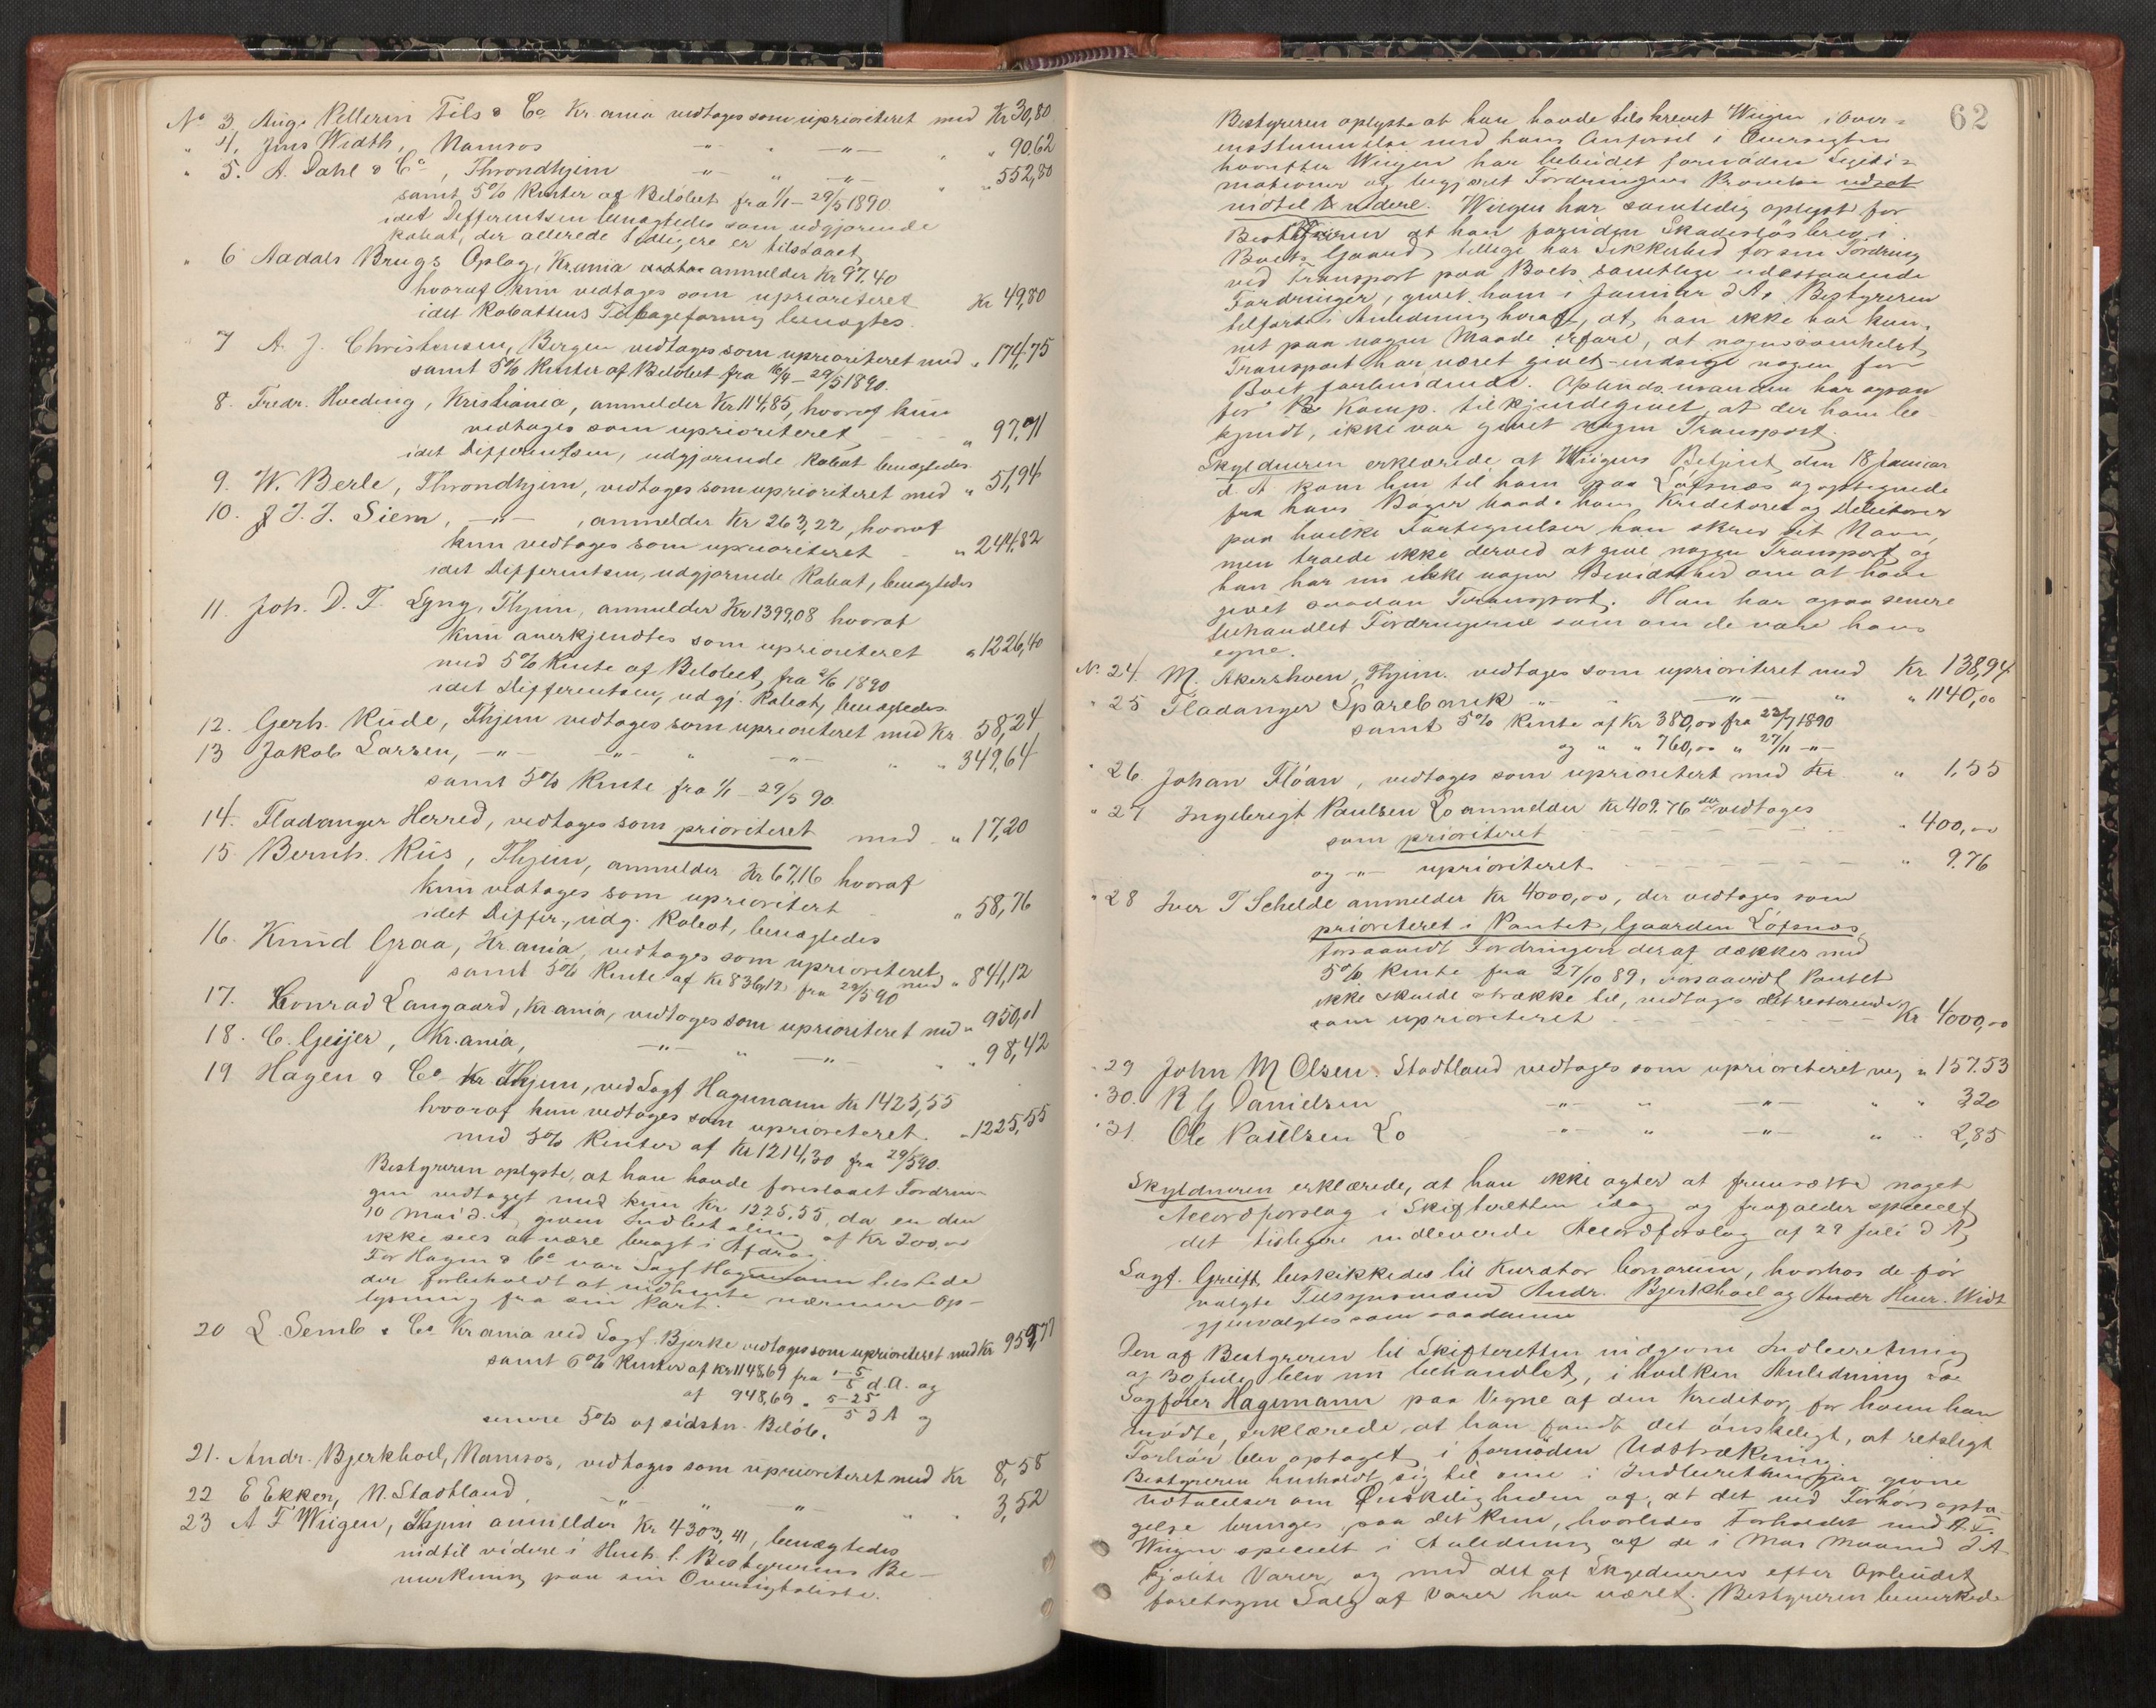 No 3, Aug. Pellerin Fils & Co Kr.ania vedtages som uprioriteret med Kr 30,80
" 4, Jens Width, Namsos -"- " -"- " " 90,62
" 5. A. Dahl & Co, Throndhjem -"- " -"- " " 552,80
samt 5% Renter af Beløbet fra 1/1 - 29/5 1890.
idet Differentsen benægtedes som udgjørende
Rabat, der allerede tidligere er tilstaaet
" 6 Aadals Brugs Oplag, Kr.ania anmelder Kr 97,40
hvoraf kun vedtages som uprioriteret Kr 49,80
idet Rabattens Tilbageføring benægtes.
7 A. J. Christensen, Bergen vedtages som uprioriteret med " 174,75
samt 5% Renter af Beløbet fra 16/4 - 29/5 1890.
8. Fredr. Hoeding, Kristiania, anmelder Kr 114,85, hvoraf kun
vedtages som uprioriteret " 97,71
idet Differentsen, udgjørende Rabat benægtedes
9. W. Berle, Throndhjem, vedtages som uprioriteret med " 51,94
10. J. J. Siem, -"- , anmelder Kr 263,22, hvoraf
kun vedtages som uprioriteret - " 244,82
idet Differentsen, udgjørende Rabat, benægtedes
11. Joh. D. F. Lyng, Thjem, anmelder Kr 1399,08 hvoraf
kun anerkjendtes som uprioriteret " 1226,40
med 5% Rente af Beløbet fra 2/6 1890
idet Differentsen, udgj. Rabat, benægtedes.
12. Gerh. Rude, Thjem vedtages som uprioriteret med Kr. 58,24
13 Jakob Larsen, -"- -"- " -"- " " 349,64
samt 5% Rente fra 1/1 - 29/5 90.
14. Fladanger Herred, vedtages som prioriteret med " 17,20
15. Bernh. Riis, Thjem, anmelder Kr 67,16 hvoraf
kun vedtages som uprioritert - " 58,76
idet Differ., udg. Rabat, benægtedes
16. Knud Graa, Kr.ania, vedtages som uprioriteret
med " 841,12
samt 5% Rente af Kr 836,12 fra 29/5 90
17. Conrad Langaard, Kr.ania, vedtages som uprioriteret med " 950,01
18. C. Geijer, Kr.ania, -"- " -"- " " 98,42
19 Hagen & Co Thjem, ved Sagf Hagemann Kr 1425,55
hvoraf kun vedtages som uprioriteret. " 1225,55
med 5% Renter af Kr 1214,30 fra 29/5 90.
Bestyreren oplyste, at han havde foreslaaet Fordrin-
gen vedtaget med kun Kr. 1225,55, da en den
10 Mai d. A. given Indbetaling af Kr 200,00
ikke sees at være bragt i Afdrag.
For Hagen & Co var Sagf Hagemann tilstede
der forbeholdt at indhente nærmere Op-
lysning fra sin Part.
20 L. Semb & Co Kr.ania ved Sagf. Bjerke vedtages som uprioriteret med Kr 959,77
samt 6% Renter af Kr 1148,69 fra 1-5/5 d.A. og
af 948,69 " 5-25/5 d A og
senere 5% af sidstn. Beløb.
21. Andr. Bjerkhoel, Namsos, vedtages som uprioriteret med Kr 8,58
22 E Ekker, N. Stadtland, -"- " -"- " " 3,52
23 A F Wiigen, Thjem anmelder Kr 4303,41, benægtedes
indtil videre i Henh. t. Bestyrerens Be-
mærkning paa sin Oversigtsliste.
62
Bestyreren oplyste at han havde tilskrevet Wiigen i Over-
ensstemmelse med hans Anførsel i Oversigten
hvorefter Wiigen har bebudet fornøden Legiti-
mationer og begjæret Fordringens Prøvelse udsat
indtil videre. Wiigen har samtidig oplyst for
Bestyreren at han foruden Skadesløsbrev i
Boets Gaard, tillige har Sikkerhed for sin Fordring
ved Transport paa Boets samtlige udestaaende
Fordringer, givet ham i Januar d A. Bestyreren
tilførte i Anledning heraf, at han ikke har kun-
net paa nogen Maade erfare, at nogensomhelst
Transport har været givet - endsige nogen for
Boet forbindende. Opbudsmanden har ogsaa
for Komp. tilkjendegivet, at der ham be-
kjendt, ikke var givet nogen Transport.
Skyldneren erklærede at Wiigens Betjent den 18 Januar
d. A. kom hen til ham paa Løfsnæs og optegnede
fra hans Bøger baade hans Kreditorer og Debitorer
paa hvilke Fortegnelser han skrev sit Navn,
men troede ikke derved at give nogen Transport og
han har nu ikke nogen Bevidsthed om at have
givet saadan Transport. Han har ogsaa senere
behandlet Fordringerne som om de vare hans
egne.
No 24. M. Akershoen, Thjem. vedtages som uprioriteret med Kr 138,94
" 25 Fladanger Sparebank " -"- " " 1140,00
samt 5% Rente af Kr 380,00 fra 23/7 1890
og " " 760,00 " 27/11 -"-
" 26. Johan Flóan, vedtages som uprioritert med Kr. " 1,55
" 27 Ingebrigt Paulsen Lo anmelder Kr 409.76 der vedtages
som prioriteret " 400,00
og -"- uprioriteret " 9.76
" 28 Iver T Schelde anmelder Kr 4000,00, der vedtages som
prioriteret i Pantet, Gaarden Løfsnæs,
forsaavidt Fordringen deraf dækkes med
5% Rente fra 27/10 89, forsaavidt Pantet
ikke skulde strække til, vedtages det resterende
som uprioriteret Kr 4000,00
" 29 John M Olsen. Stadtland vedtages som uprioriteret m. " 157.53
" 30. R G Danielsen -"- " -"- " " 3,20
" 31 Ole Paulsen Lo -"- " -"- " " 2,85
Skyldneren erklærede, at han ikke agter at fremsætte noget
Accordforslag i Skifteretten idag og frafalder specielt
det tidligere indleverede Accordforslag af 29 Juli d A,
Sagf. Greift beskikkedes til Kurator bonorum, hvorhos de før
valgte Tilsynsmænd Andr. Bjerkhoel og Andr Henr. Widt
gjenvalgtes som saadanne
Den af Bestyreren til Skifteretten indgivne Indberetning
af 30 Juli blev nu behandlet, i hvilken Anledning
Sagfører Hagemann paa Vegne af den Kreditor, for hvem han
mødte, erklærede at han fandt det ønskeligt, at retsligt
Forhør blev optaget i fornøden Udstrækning.
Bestyreren henholdt sig til sine i Indberetningen givne
Udtalelser om Ønskeligheden af, at det ved Forhørs opta-
gelse bringes paa det Rene, hvorledes Forholdet med A. F.
Wiigen specielt i Anledning af de i Mai Maaned d A
kjøbte Varer, og med det af Skyldneren efter Opbudet
foretagne Salg af Varer har været. Bestyreren bemærkede